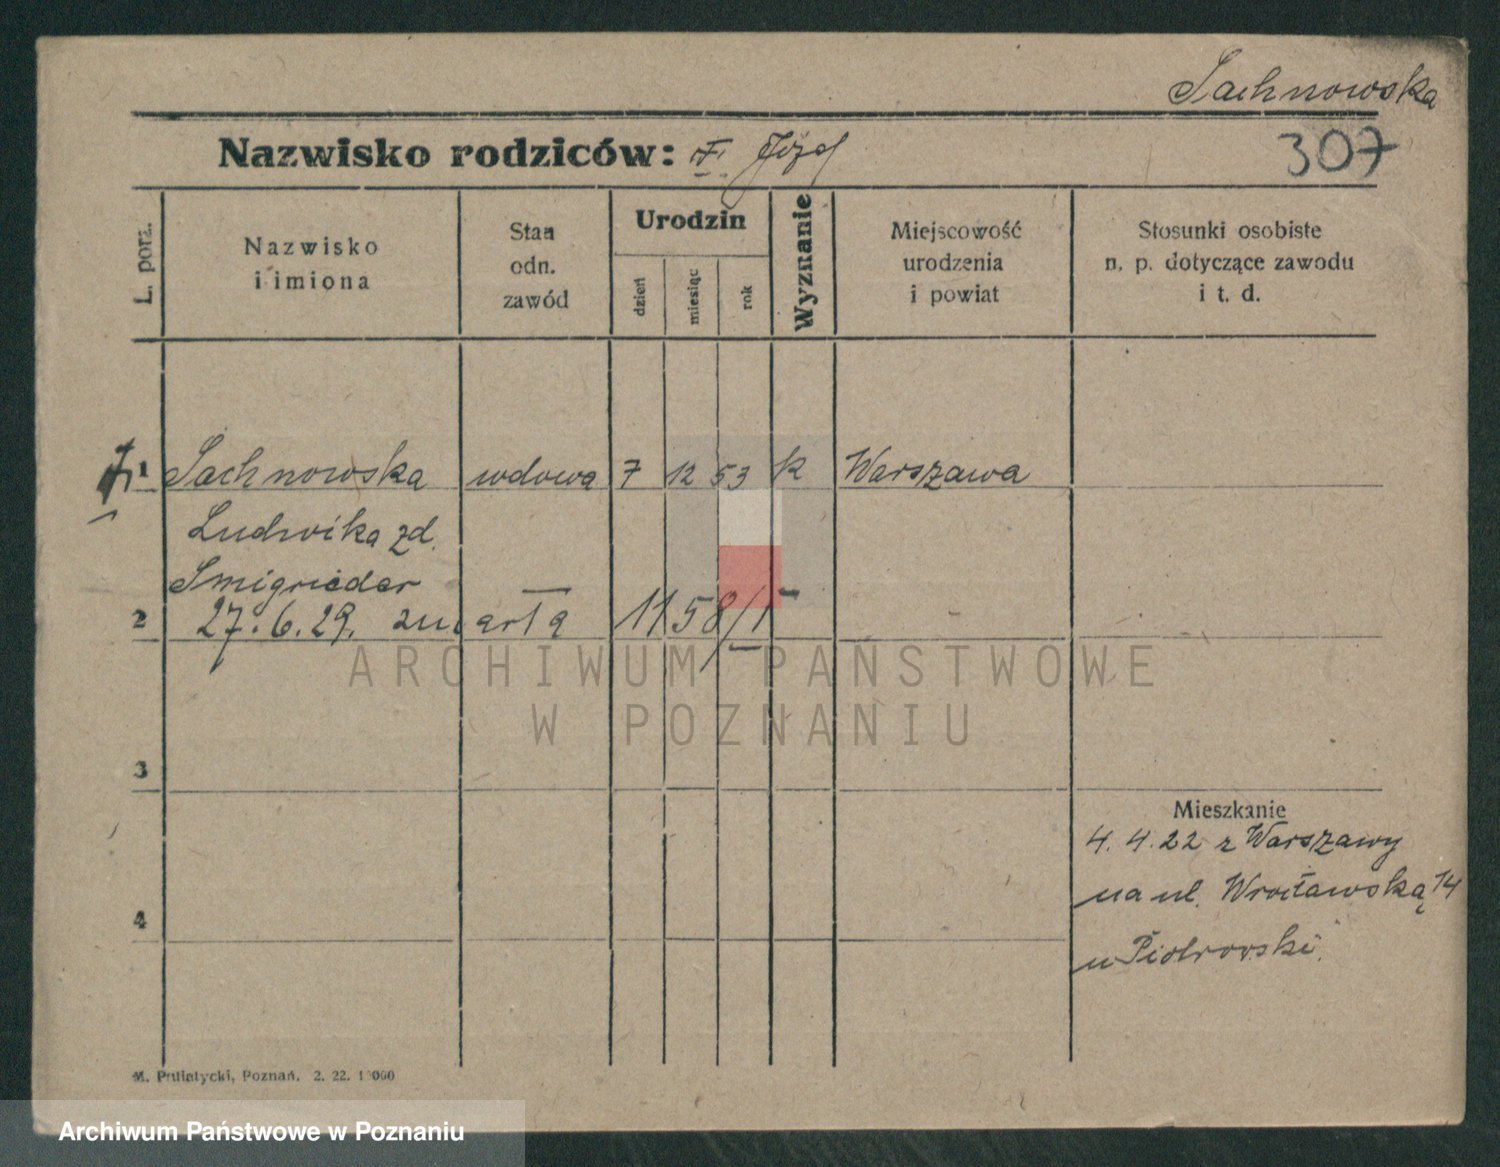 Sachnowska
Nazwisko rodziców: Józef
307
L. porz.
Nazwisko
i imiona
Stan
odn.
zawód
Urodzin
dzień
miesiąc
rok
Wyznanie
Miejscowość
urodzenia
i powiat
Stosunki osobiste
n. p. dotyczące zawodu
i t. d.
1 Sachnowska wdowa 7 12 53 k Warszawa
Ludwika zd.
Smigrieder
2 27.6.29. zmarła 1158/I
ARCHIWUM PAŃSTWOWE
W POZNANIU
3
Mieszkanie
4. 4. 22 z Warszawy
na ul. Wrocławską 14
4
u Piotrowski.
M. Putiatycki, Poznań. 2. 22. 1000
Archiwum Państwowe w Poznaniu